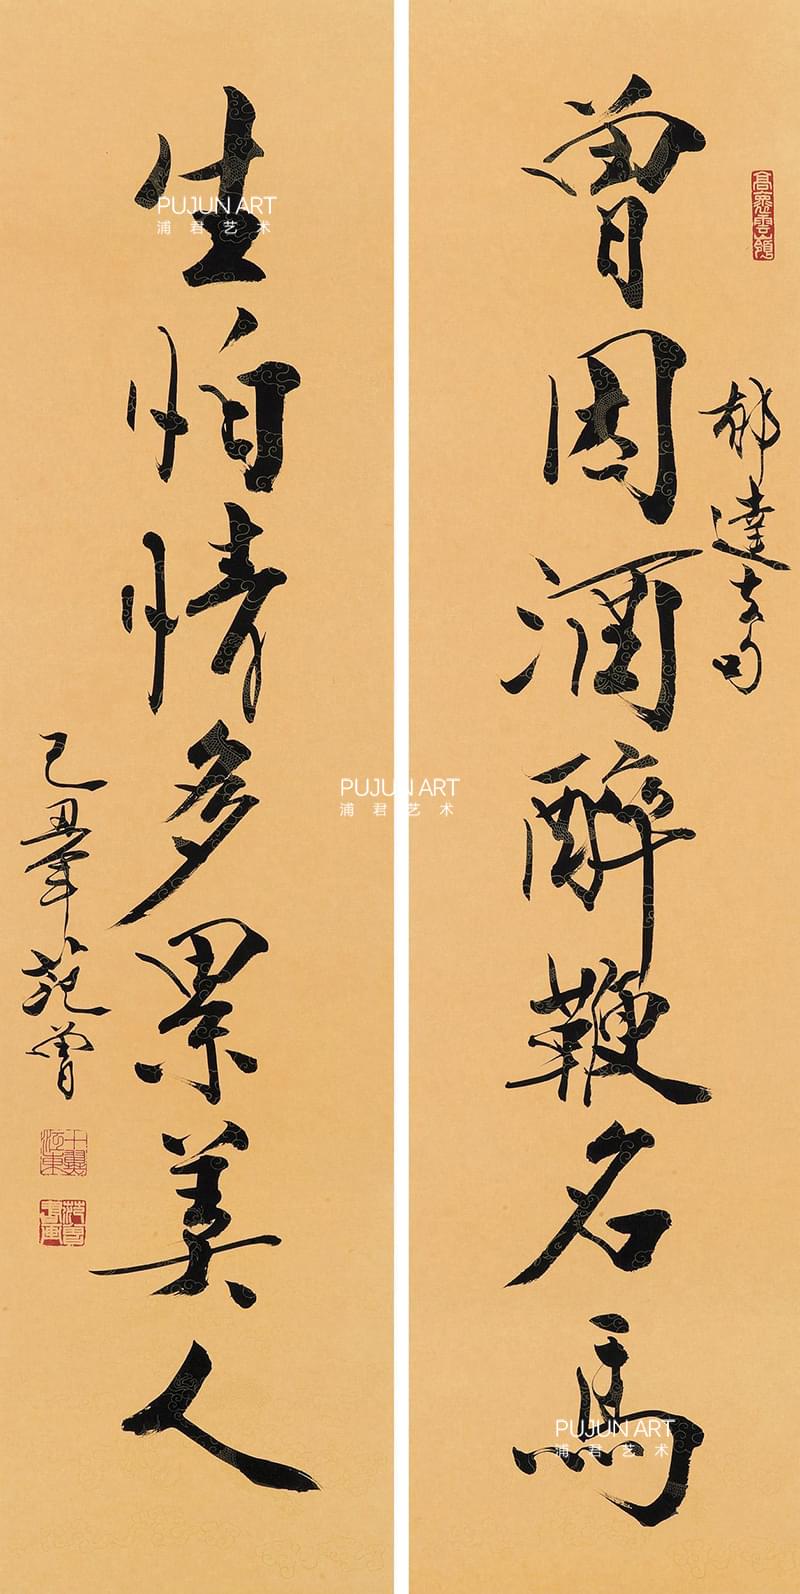 曾因酒醉鞭名馬
郁達夫句
生怕情多累美人
己丑年 范曾
十翼江東
PUJUN ART
浦君艺术
PUJUN ART
浦君艺术
PUJUN ART
浦君艺术